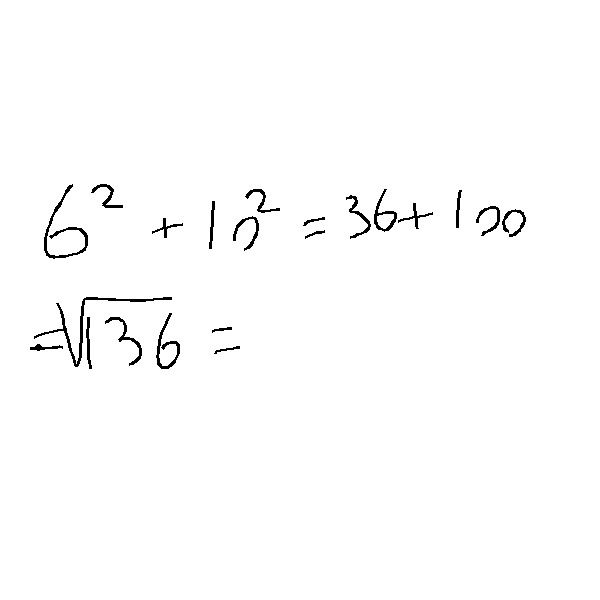 6² + 10² = 36 + 100
= √136 =